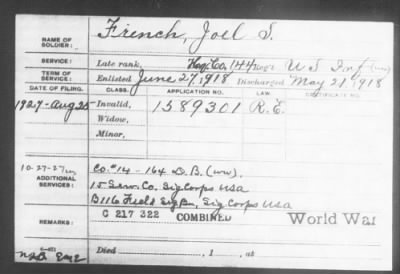 NAME OF SOLDIER: French, Joel S.
SERVICE: Late rank, Hdq. Co. 144 Regt U S Inf
TERM OF SERVICE: Enlisted June 27, 1918 Discharged May 21, 1918
DATE OF FILING. CLASS. APPLICATION NO. LAW CERTIFICATE NO.
1927-Aug 25 Invalid, 1589301 R.E.
Widow,
Minor,
10-27-27 Co. #14 - 164 D.B. (WW).
ADDITIONAL SERVICES: 15 Serv. Co. Sig Corps USA
B 116 Field Sig Bn, Sig Corps USA
C 217 322 COMBINED World War
REMARKS:
Died , 1 , at